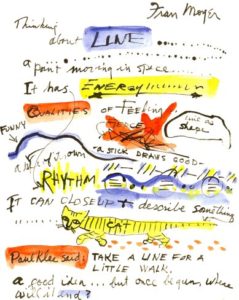 Fran Moyer
Thinking
about LINE
a point moving in space....
It has ENERGY
QUALITIES OF FEELING
line as
shape
FUNNY
a stick draws good
a life of its own
RHYTHM
IT CAN CLOSE UP to describe something
CAT
Paul Klee said, TAKE A LINE FOR A
LITTLE WALK.
a good idea... but once begun, where
will it end?